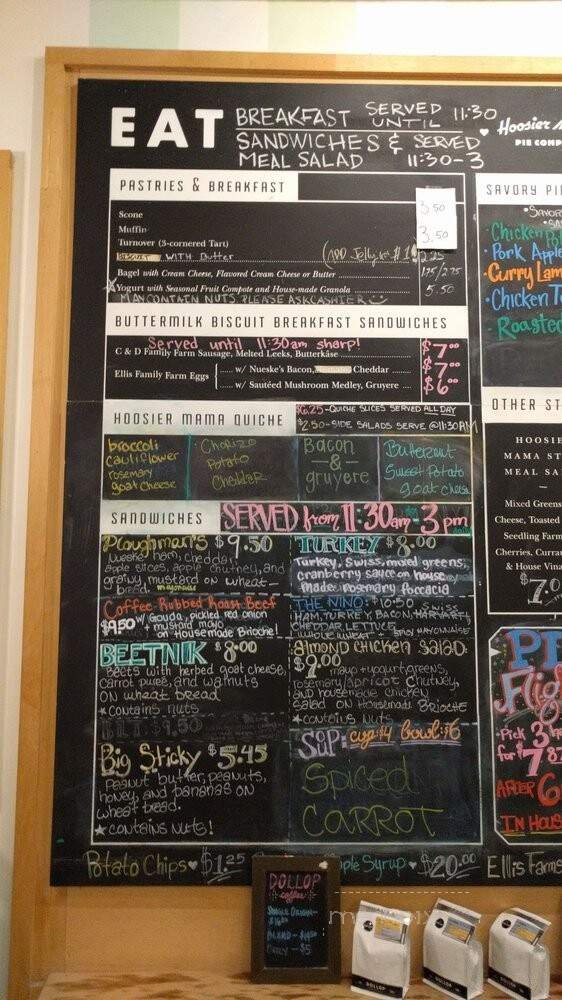 EAT BREAKFAST SERVED UNTIL 11:30
SANDWICHES & SERVED
MEAL SALAD 11:30-3
Hoosier
PIE COMP
PASTRIES & BREAKFAST
Scone 3.50
Muffin
Turnover (3-cornered Tart) 3.50
BISCUIT WITH Butter (ADD Jelly $1) 2.25
Bagel with Cream Cheese, Flavored Cream Cheese or Butter 1.75/2.75
Yogurt with Seasonal Fruit Compote and House-made Granola 5.50
MAY CONTAIN NUTS PLEASE ASK CASHIER
BUTTERMILK BISCUIT BREAKFAST SANDWICHES
Served until 11:30am sharp!
C & D Family Farm Sausage, Melted Leeks, Butterkäse $7.00
Ellis Family Farm Eggs w/ Nueske's Bacon, Cheddar $7.00
w/ Sautéed Mushroom Medley, Gruyere $6.00
HOOSIER MAMA QUICHE
$6.25-QUICHE SLICES SERVED ALL DAY
$2.50-SIDE SALADS SERVE @11:30AM
broccoli
cauliflower
rosemary
goat cheese
Chorizo
Potato
Cheddar
Bacon
&
gruyere
Butternut
Sweet Potato
goat cheese
SANDWICHES SERVED from 11:30am-3pm
Ploughman's $9.50
Nueske ham, cheddar,
apple slices, apple chutney, and
grainy mustard on wheat
bread. mayonnaise
Coffee Rubbed Roast Beef
$9.50 w/ Gouda, pickled red onion
+ mustard mayo
on Housemade Brioche!
BEETNIK $8.00
Beets with herbed goat cheese,
carrot puree, and walnuts
on wheat bread
*contains nuts
BLT: $9.50
Big Sticky $5.45
Peanut butter, peanuts,
honey, and bananas on
wheat bread.
★contains nuts!
TURKEY $8.00
Turkey, swiss, mixed greens,
cranberry sauce on house
made rosemary foccacia
THE NINO: $10.50 SWISS
HAM, TURKEY, BACON, HAVARTI,
CHEDDAR, LETTUCE
WHOLE WHEAT + SPICY MAYONNAISE
almond chicken salad:
$9.00 mayo + yogurt, greens,
rosemary/apricot chutney,
and housemade chicken
salad on Housemade BRIOCHE
*contains nuts
SOUP: cup:$4 bowl:$6
Spiced
CARROT
Potato Chips $1.25
ple Syrup $20.00
Ellis Farms
SAVORY PI
Chicken Po
Pork Apple
Curry Lam
Chicken T
Roasted
OTHER ST
HOOSIE
MAMA ST
MEAL SA
Mixed Greens
Cheese, Toasted
Seedling Farm
Cherries, Curra
& House Vina
$7.0
PI
Flig
Pick 3
for $7.87
AFTER 6
IN HOUS
DOLLOP
coffee
SINGLE ORIGIN-
BLEND-
ONLY-$5
DOLLOP
DOLLOP
DOLLOP